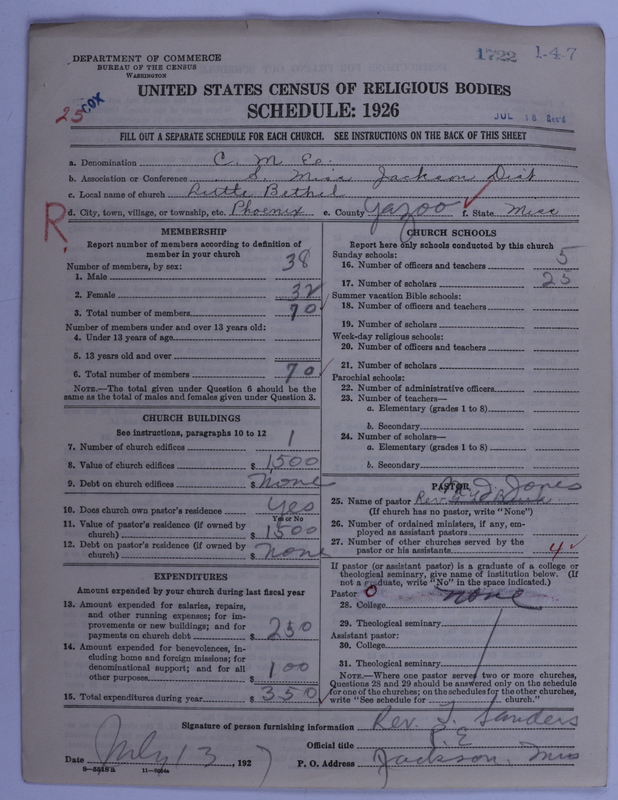 1722 1-47
DEPARTMENT OF COMMERCE
BUREAU OF THE CENSUS
WASHINGTON
UNITED STATES CENSUS OF RELIGIOUS BODIES
SCHEDULE: 1926
25 COX
JUL 18 Rec'd
FILL OUT A SEPARATE SCHEDULE FOR EACH CHURCH. SEE INSTRUCTIONS ON THE BACK OF THIS SHEET
a. Denomination C. M. E.
b. Association or Conference S. Miss Jackson Dist
c. Local name of church Little Bethel
d. City, town, village, or township, etc. Phoenix e. County Yazoo f. State Miss
R.
MEMBERSHIP
Report number of members according to definition of
member in your church
Number of members, by sex:
1. Male 38
2. Female 32
3. Total number of members 70
Number of members under and over 13 years old:
4. Under 13 years of age
5. 13 years old and over
6. Total number of members 70
NOTE.—The total given under Question 6 should be the
same as the total of males and females given under Question 3.
CHURCH BUILDINGS
See instructions, paragraphs 10 to 12
7. Number of church edifices 1
8. Value of church edifices $ 1500
9. Debt on church edifices $ none
10. Does church own pastor's residence yes
Yes or No
11. Value of pastor's residence (if owned by
church) $ 1500
12. Debt on pastor's residence (if owned by
church) $ none
EXPENDITURES
Amount expended by your church during last fiscal year
13. Amount expended for salaries, repairs,
and other running expenses; for im-
provements or new buildings; and for
payments on church debt $ 250
14. Amount expended for benevolences, in-
cluding home and foreign missions; for
denominational support; and for all
other purposes $ 100
15. Total expenditures during year $ 350
CHURCH SCHOOLS
Report here only schools conducted by this church
Sunday schools:
16. Number of officers and teachers 5
17. Number of scholars 25
Summer vacation Bible schools:
18. Number of officers and teachers
19. Number of scholars
Week-day religious schools:
20. Number of officers and teachers
21. Number of scholars
Parochial schools:
22. Number of administrative officers
23. Number of teachers—
a. Elementary (grades 1 to 8)
b. Secondary
24. Number of scholars—
a. Elementary (grades 1 to 8)
b. Secondary
PASTOR
Jones
25. Name of pastor Rev.
(If church has no pastor, write "None")
26. Number of ordained ministers, if any, em-
ployed as assistant pastors
27. Number of other churches served by the
pastor or his assistants 4
If pastor (or assistant pastor) is a graduate of a college or
theological seminary, give name of institution below. (If
not a graduate, write "No" in the space indicated.)
Pastor: 0
28. College none
29. Theological seminary
Assistant pastor:
30. College
31. Theological seminary
NOTE.—Where one pastor serves two or more churches,
Questions 28 and 29 should be answered only on the schedule
for one of the churches; on the schedules for the other churches,
write "See schedule for church."
Signature of person furnishing information Rev. T. Sanders
Official title P. E
Date July 13, 1927 P. O. Address Jackson, Miss